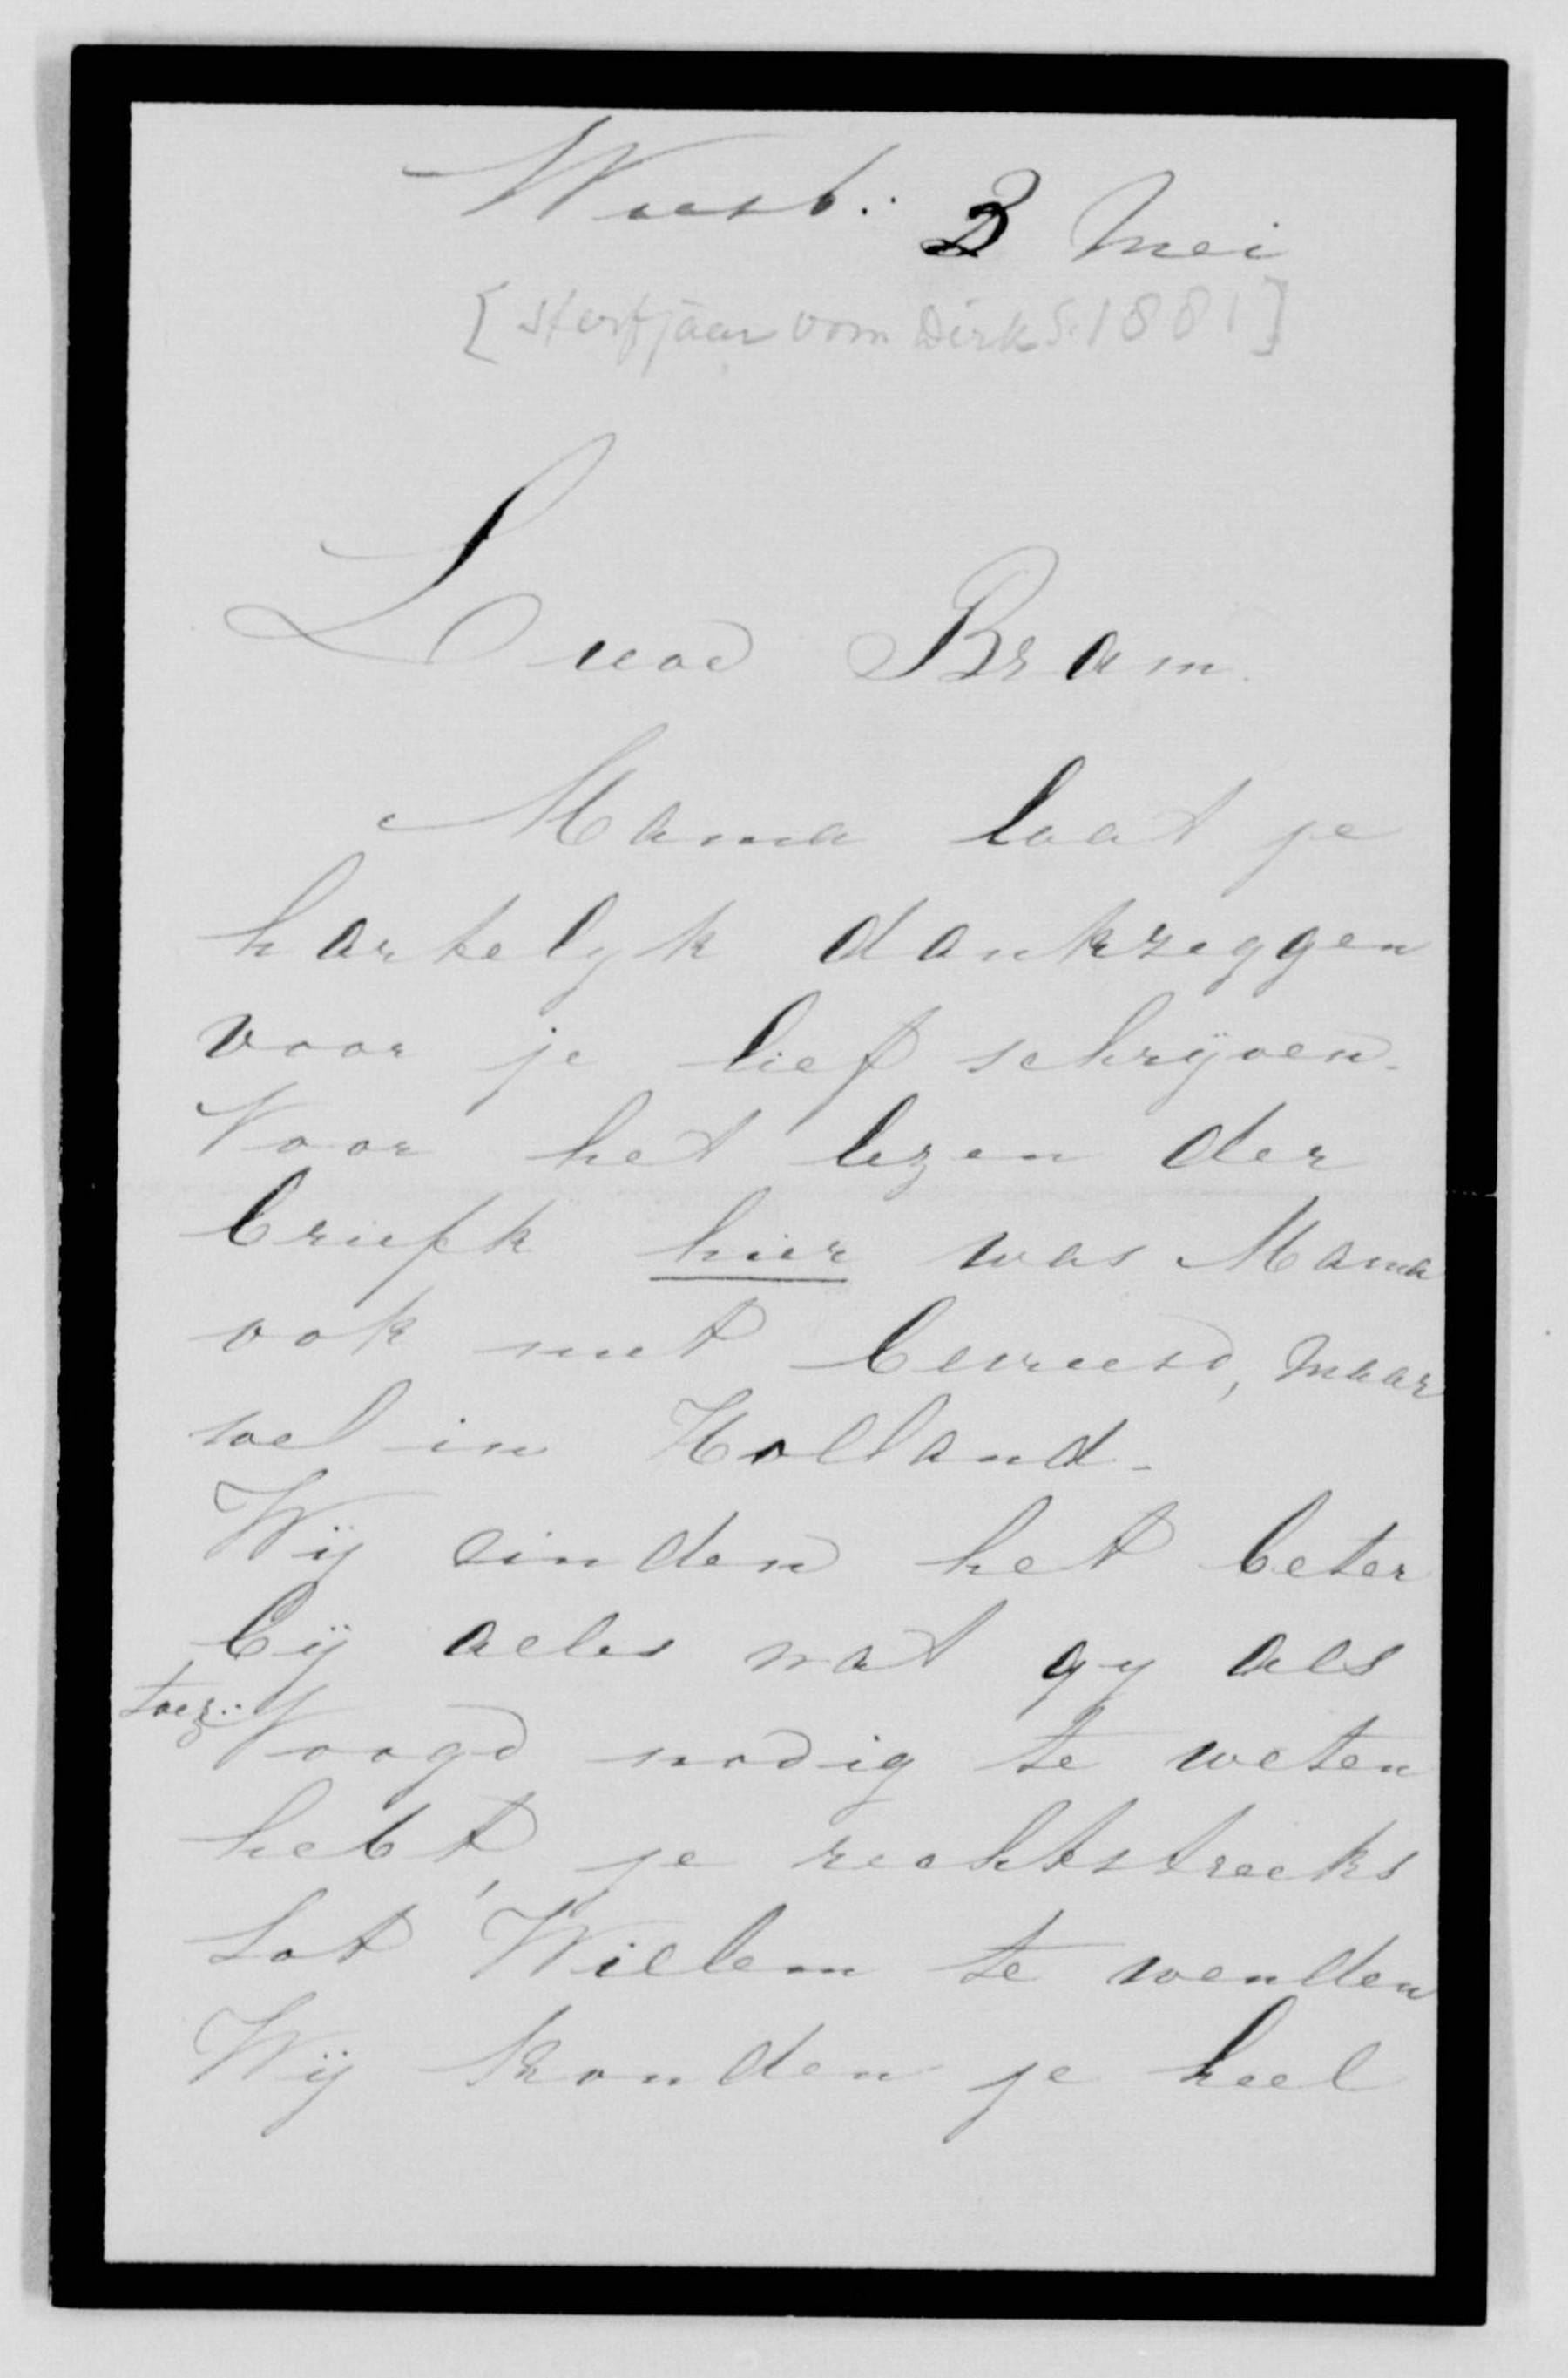 Wiesb: 3 Mei
[sterfjaar vom Dirk S. 1881]
Bram.
Mama laat je
hartelyk dankzeggen
voor je lief schrijven.
Voor het lezen der
briefk hier was Mama
ook niet bevreesd, maar
wel in Holland.
Wij vinden het beter
bij alles wat gy als
toez: Voogd nodig te weten
hebt, je rechtstreeks
tot Willem te wenden
Wij konden je heel